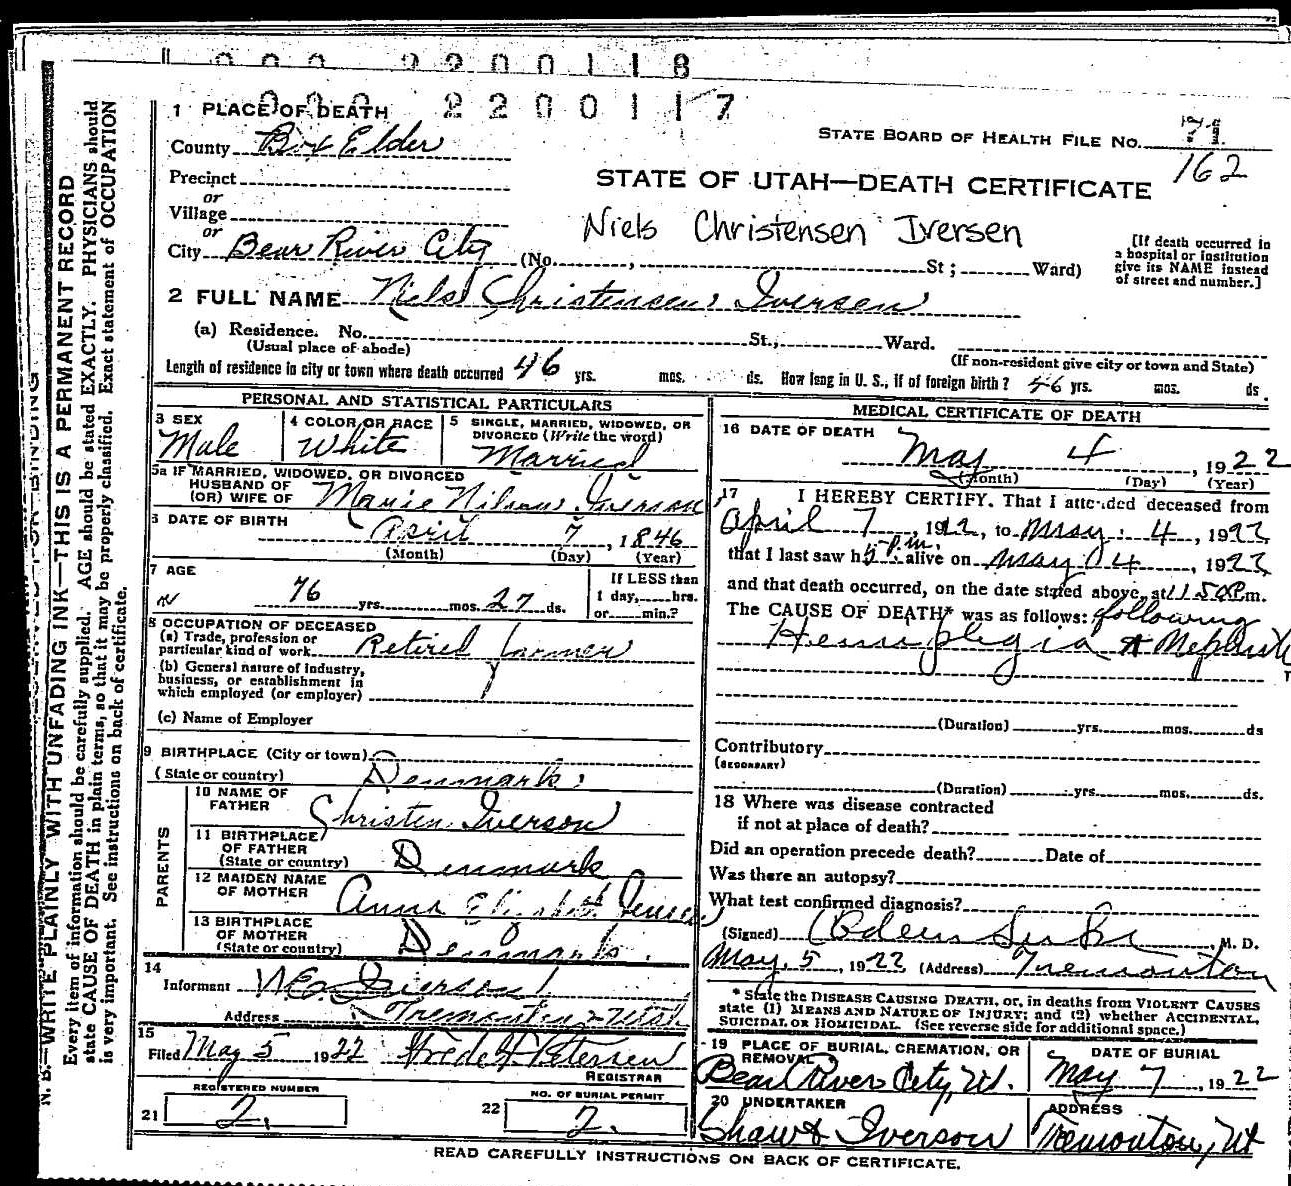 000 2200118
000 2200117
1 PLACE OF DEATH
STATE BOARD OF HEALTH FILE NO. 71
162
County Box Elder
STATE OF UTAH—DEATH CERTIFICATE
Precinct
or
Village
Niels Christensen Iversen
or
City Bear River City (No. , St; Ward)
[If death occurred in
a hospital or institution
give its NAME instead
of street and number.]
2 FULL NAME Niels Christensen Iversen
(a) Residence. No. St., Ward.
(Usual place of abode)
(If non-resident give city or town and State)
Length of residence in city or town where death occurred 46 yrs. mos. ds. How long in U. S., if of foreign birth? 46 yrs. mos. ds.
PERSONAL AND STATISTICAL PARTICULARS
3 SEX
Male
4 COLOR OR RACE
White
5 SINGLE, MARRIED, WIDOWED, OR
DIVORCED (Write the word)
Married
5a IF MARRIED, WIDOWED, OR DIVORCED
HUSBAND OF
(OR) WIFE OF Marie Nilson Iverson
6 DATE OF BIRTH
April 7, 1846
(Month) (Day) (Year)
7 AGE
76 yrs. mos. 27 ds.
If LESS than
1 day, hrs.
or min.?
8 OCCUPATION OF DECEASED
(a) Trade, profession or
particular kind of work Retired farmer
(b) General nature of industry,
business, or establishment in
which employed (or employer)
(c) Name of Employer
9 BIRTHPLACE (City or town)
(State or country) Denmark
PARENTS
10 NAME OF
FATHER Christen Iverson
11 BIRTHPLACE
OF FATHER
(State or country) Denmark
12 MAIDEN NAME
OF MOTHER Anna Elizabeth
13 BIRTHPLACE
OF MOTHER
(State or country) Denmark.
14
Informant Iverson
Address Tremonton Utah
15
Filed May 5 1922
REGISTRAR
REGISTERED NUMBER
21 2.
NO. OF BURIAL PERMIT
22 2.
MEDICAL CERTIFICATE OF DEATH
16 DATE OF DEATH
May 4, 1922
(Month) (Day) (Year)
17 I HEREBY CERTIFY, That I attended deceased from
April 7, 1922, to May 4, 1922
that I last saw h alive on May 4, 1922
and that death occurred, on the date stated above, at 11:50 P.m.
The CAUSE OF DEATH* was as follows: following
Hemiplegia
(Duration) yrs. mos. ds
Contributory
(SECONDARY)
(Duration) yrs. mos. ds.
18 Where was disease contracted
if not at place of death?
Did an operation precede death? Date of
Was there an autopsy?
What test confirmed diagnosis?
(Signed) , M. D.
May 5, 1922 (Address) Tremonton
* State the DISEASE CAUSING DEATH, or, in deaths from VIOLENT CAUSES
state (1) MEANS AND NATURE OF INJURY; and (2) whether ACCIDENTAL,
SUICIDAL OR HOMICIDAL. (See reverse side for additional space.)
19 PLACE OF BURIAL, CREMATION, OR
REMOVAL
Bear River City, Ut.
DATE OF BURIAL
May 7, 1922
20 UNDERTAKER
Shaw & Iverson
ADDRESS
Tremonton, Ut
READ CAREFULLY INSTRUCTIONS ON BACK OF CERTIFICATE.
N. B.—WRITE PLAINLY WITH UNFADING INK—THIS IS A PERMANENT RECORD
Every item of information should be carefully supplied. AGE should be stated EXACTLY. PHYSICIANS should
state CAUSE OF DEATH in plain terms, so that it may be properly classified. Exact statement of OCCUPATION
is very important. See instructions on back of certificate.